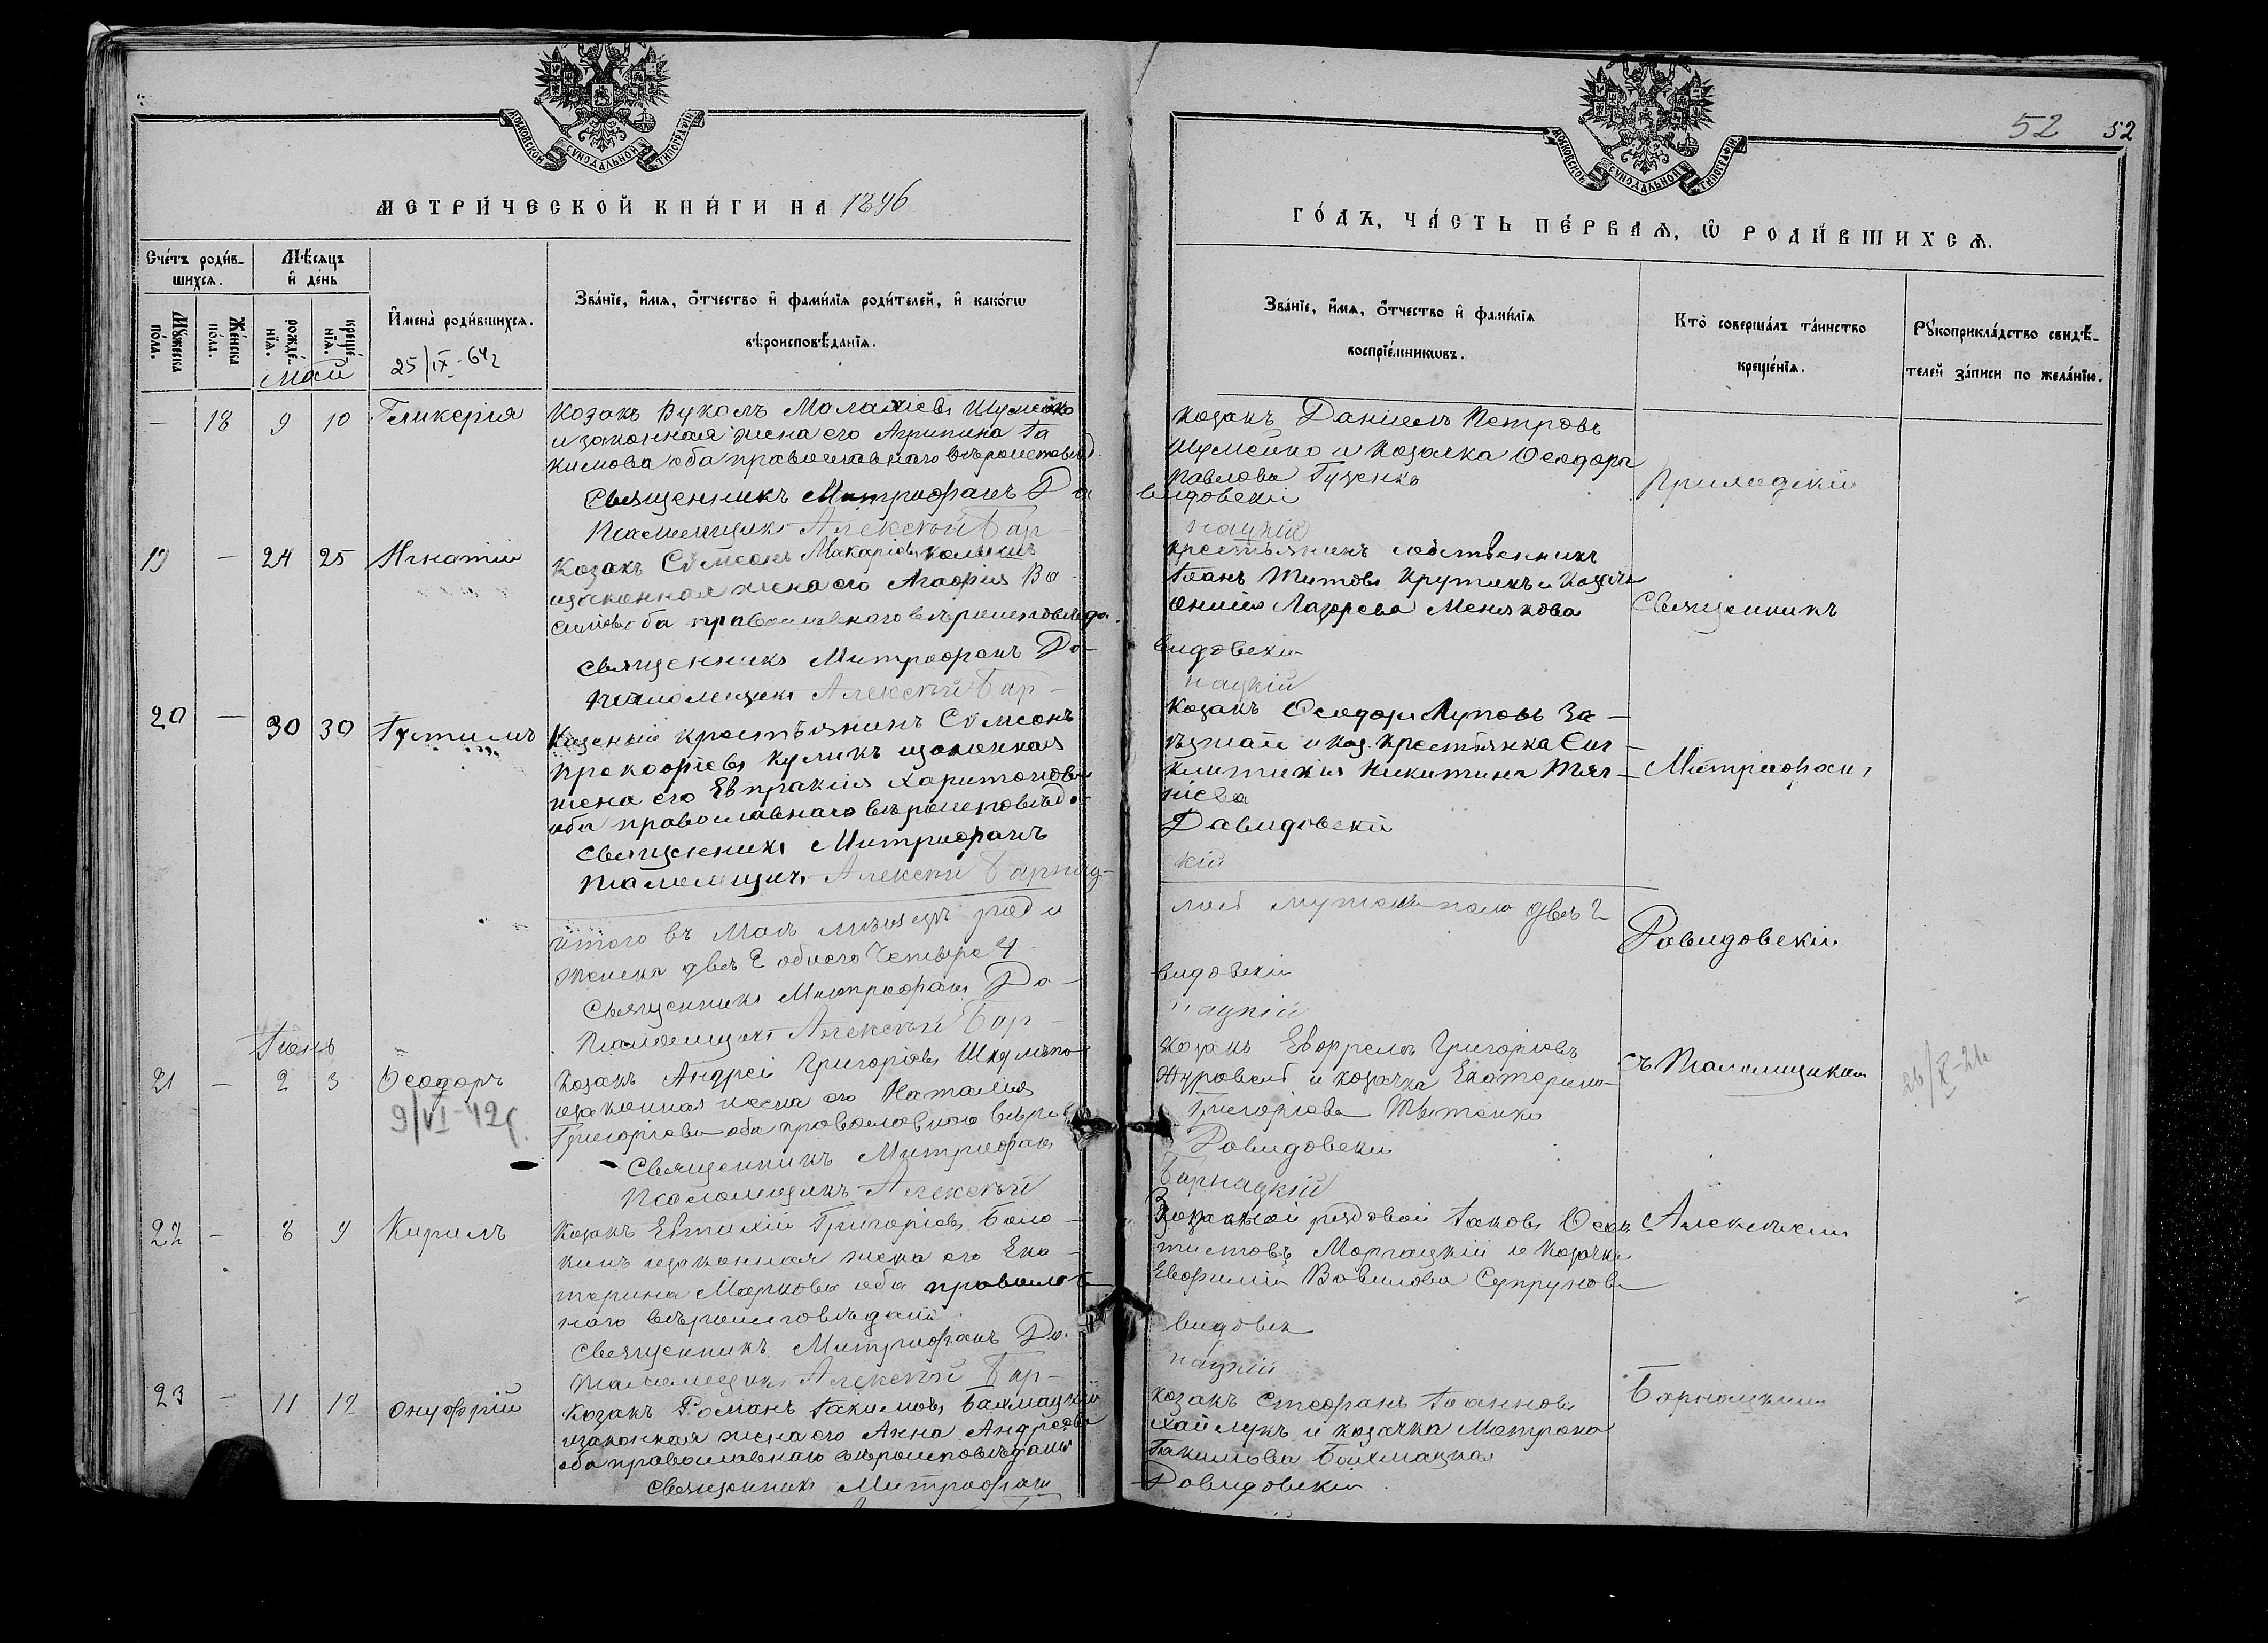 МОСКОВСКОЙ СѴНОДАЛЬНОЙ ТИПОГРАФІИ
МЕТРИ́ЧЕСКОЙ КНИ́ГИ НА 1896
Сче́тъ роди́в-
шихся.
Мѣ́сяцъ
и҆ де́нь
Мꙋ́жеска
по́ла.
Же́нска
по́ла.
рожде́-
нїѧ.
креще́
нїѧ.
Май
И҆мена̀ роди́вшихсѧ.
25/IX-64г
Зва́нїе, и҆́мѧ, ѻ҆́тчество и҆ фами́лїѧ роди́телей, и҆ како́гѡ
вѣроисповѣ́данїѧ.
— 18 9 10 Гликерія
Козакъ Вуколъ Малахіевъ Шумейко
и законная жена его Агрипина Іа
кимова оба православнаго вѣроисповѣд.
Священникъ Митрофанъ Да
Псаломщикъ Алексѣй Бар-
19 — 24 25 Игнатій
Козакъ Сѵмеонъ Макаріевъ
изаконная жена его Агафія Ва
оба православнаго вѣроисповѣда.
Священникъ Митрофанъ Да-
Псаломщикъ Алексѣй Бар-
20 — 30 30 Іустинъ
Казеный крестьянинъ Сѵмеонъ
Прокофіевъ Куликъ изаконная
жена его Евпраксія Харитонова
оба православнаго вѣроисповѣда-
Священникъ Митрофанъ
Псаломщикъ Алексѣй Барнац-
итого въ Маѣ мѣсяцѣ роди
женска двѣ 2 обоего четыре 4
Священникъ Митрофанъ Да-
Псаломщикъ Алексѣй Бар-
Іюнь
21 — 2 3 Ѳеодоръ
9/VI-42г.
Козакъ Андрей Григоріевъ
изаконная жена его Наталія
Григоріева оба православного вѣро
Священникъ Митрофанъ
Псаломщикъ Алексѣй
22 — 8 9 Кирилъ
Козакъ Евтихій Григоріевъ Боло-
кинъ изаконная жена его Ека-
терина Маркова оба православ
наго вѣроисповѣданія
Священникъ Митрофанъ Да-
Псаломщикъ Алексѣй Бар-
23 — 11 12 Онуфрій
Козакъ Романъ Іакимовъ Бахмацкій
изаконная жена его Анна Андреева
оба православнаго вѣроисповѣданія
Священникъ Митрофанъ
52 52
МОСКОВСКОЙ СѴНОДАЛЬНОЙ ТИПОГРАФІИ
ГО́ДЪ, ЧА́СТЬ ПЕ́РВАѦ, Ѡ҆ РОДИ́ВШИХСѦ.
Зва́нїе, и҆́мѧ, ѻ҆́тчество и҆ фами́лїѧ
воспрїе́мникѡвъ.
Кто̀ соверша́лъ та́инство
креще́нїѧ.
Рꙋкоприкла́дство свидѣ́-
телей за́писи по жела́нїю.
Козакъ Даніилъ Петровъ
Шумейко и Козачка Ѳеодора
Павлова Гузенко
видовскій
нацкій
крестьянинъ собственникъ
Іоанъ Титовъ Крутикъ и Козачк
Лазорева Менякова
Священникъ
видовскій
нацкій
Козакъ Ѳеодоръ За-
и каз. крестьянка Син-
клитикія Никитина
Митрофанъ
Давидовскій
кій
лось мужска пола двѣ 2
Давидовскій
видовскій
нацкій
Козакъ Григоріевъ
и козачка Екатерина
Григоріева
съ Псаломщикомъ
26/X-24г
Давидовскій
Барнацкій
рядовой Іаковъ
и Козачка
Евфимія Вавилова Супрунова
Алексѣемъ
видовск
нацкій
Козакъ Стефанъ Іоанновъ
Хайлукъ и козачка Матрона
Іакимова Бахмацкая
Барнацкимъ
Давидовскій